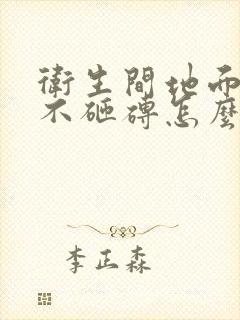 衛生間地面
不砸磚怎麼
李正森